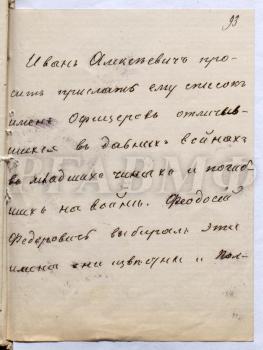 93
Иванъ Алексѣевичъ про-
ситъ прислать ему списокъ
именъ Офицеровъ отличив-
шихся въ давнихъ войнахъ
въ младшихъ чинахъ и погиб-
шихъ на войнѣ. Феодосій
Федоровичъ выбиралъ эти
имена они извѣстны и Пол-
РГАВМФ